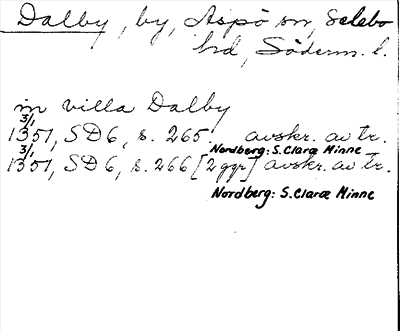 Dalby, by, Aspö sn, Selebo
hd, Söderm. l.
in villa Dalby
3/1
1357, SD6, s. 265. avskr. av tr.
Nordberg: S. Claræ Minne
3/1
1357, SD6, s. 266 [2 ggr] avskr. av tr.
Nordberg: S. Claræ Minne